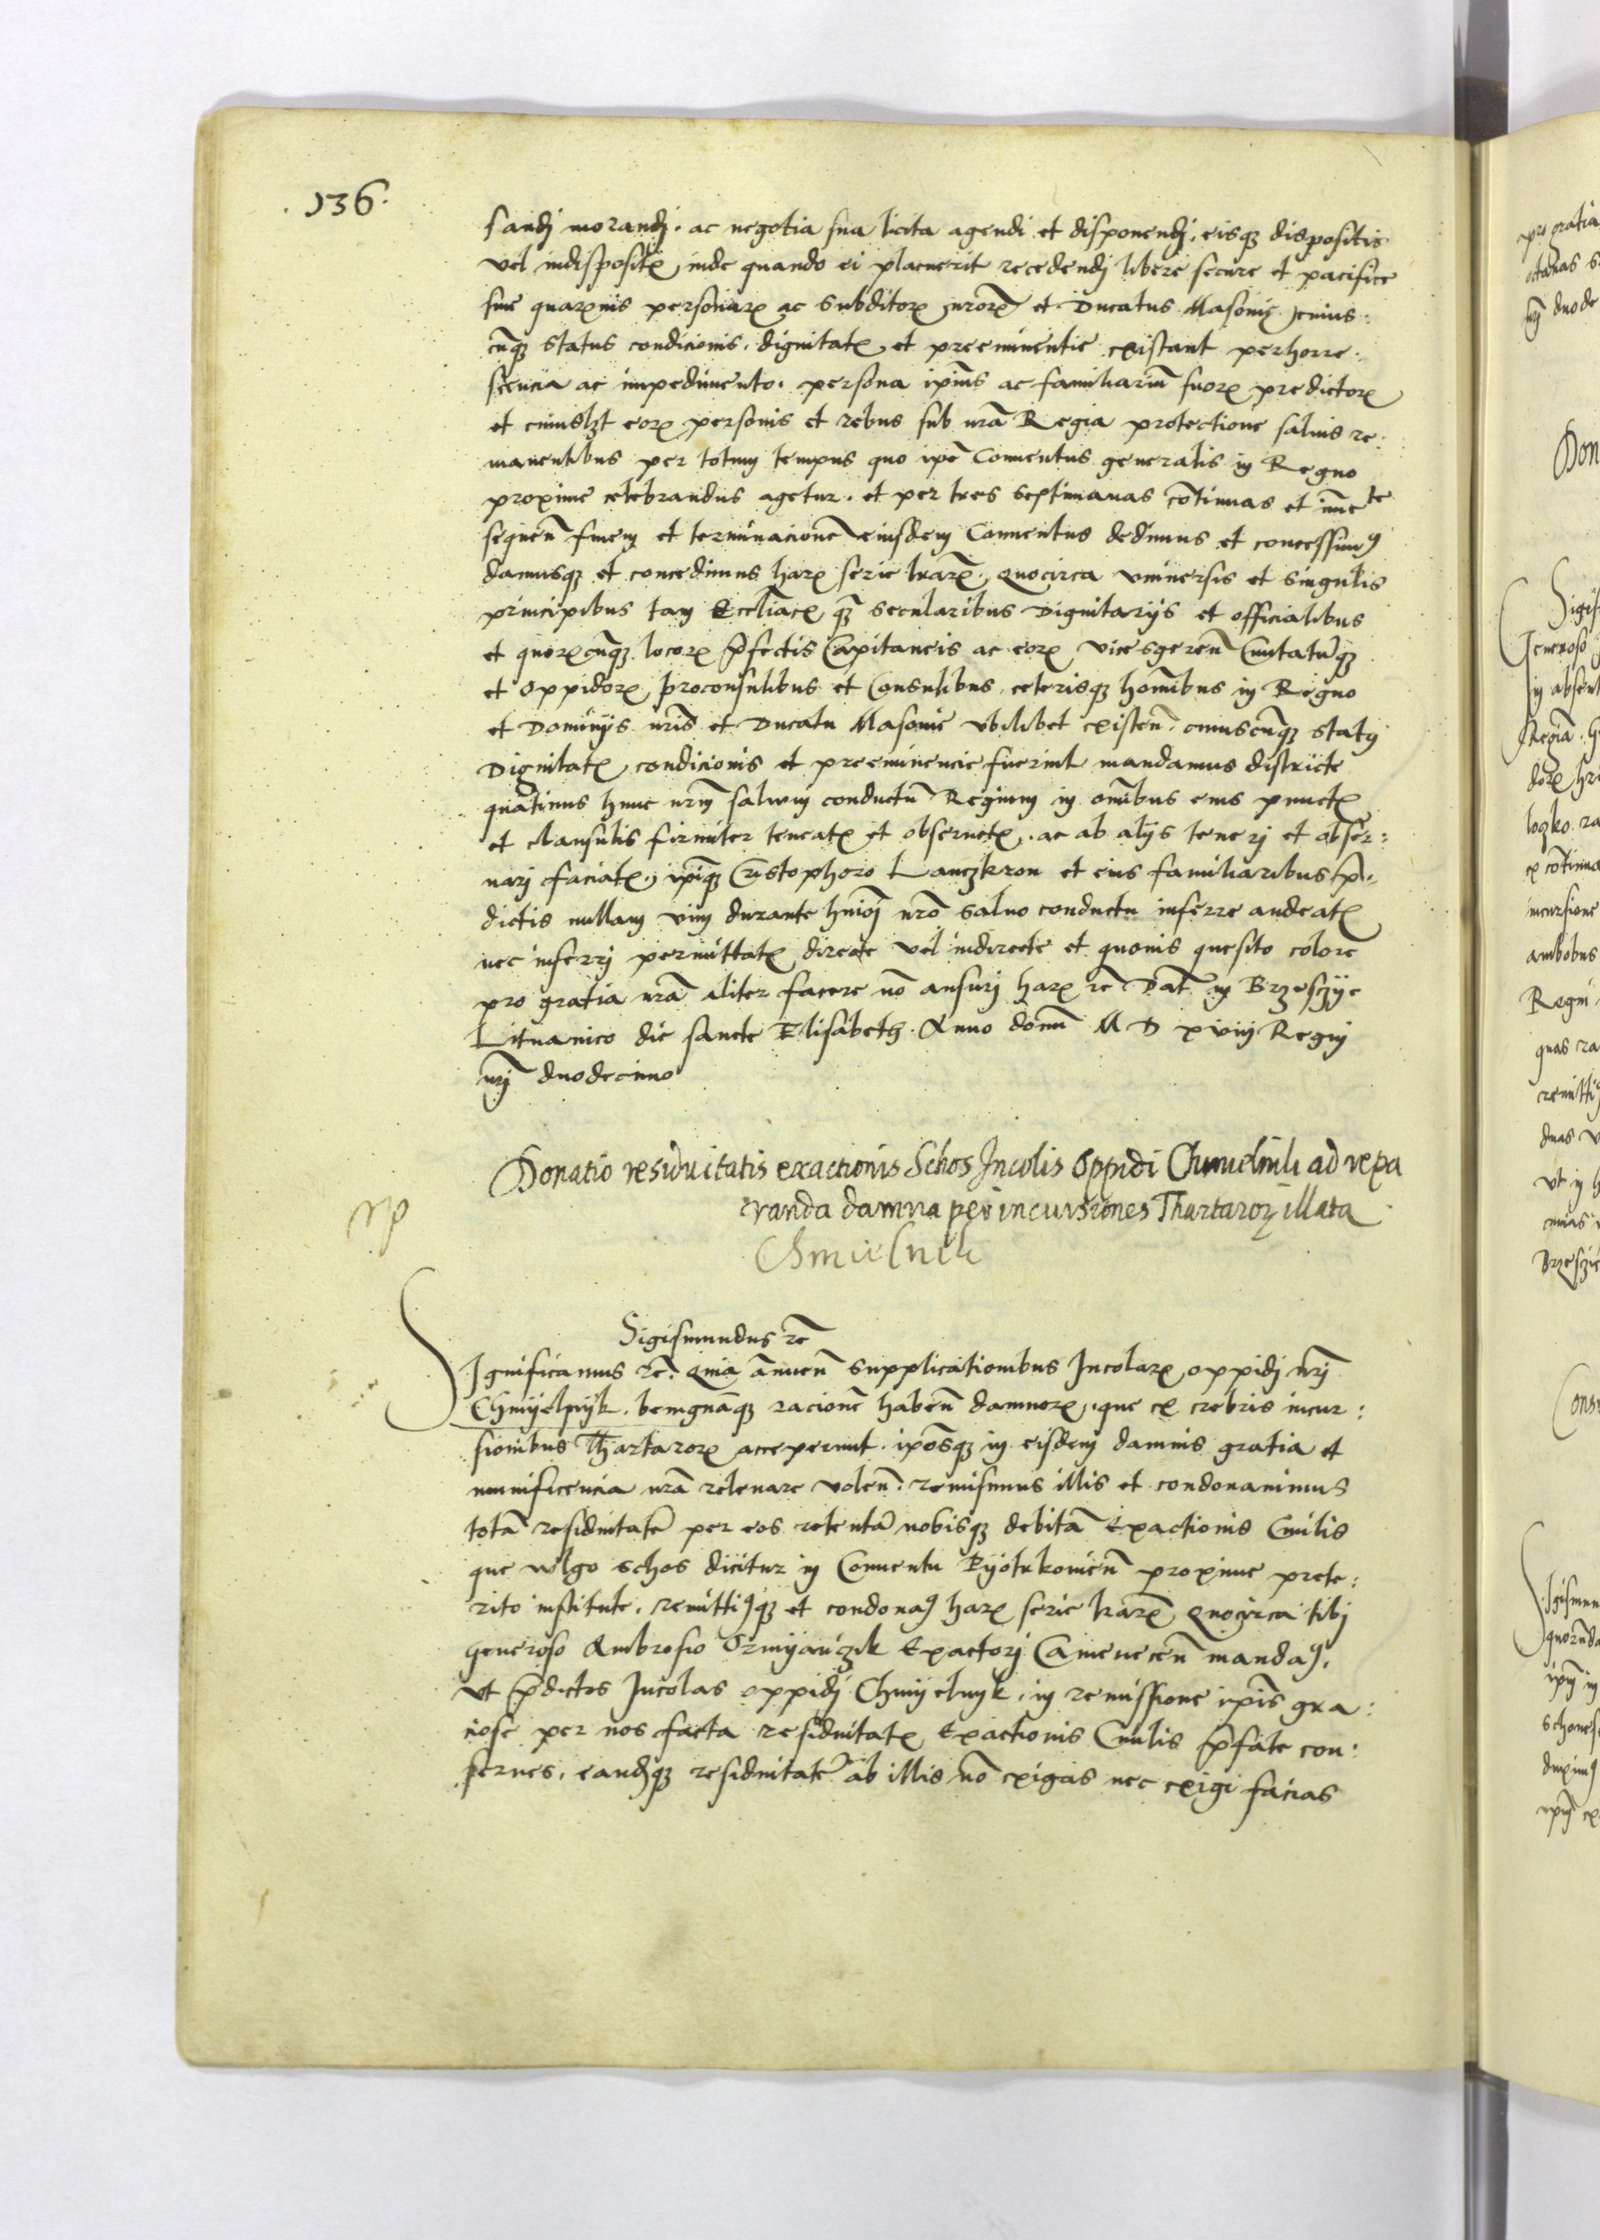 136.
sandj morandj. ac negotia sua licita agendi et disponendj. eisqz dispositis
vel indispositꝭ, inde quando ei placuerit recedendj libere secure et pacifice
sine quarꝟnis personarꝝ ac subditorꝝ nrorꝝ et Ducatus Masouie cuius:
cuqz status condicionis. dignitatꝭ et preeminentie existant perhorre:
scencia ac impedimento. persona ipius ac familiariu suorꝝ predictorꝝ
et cuiuslzt eorꝝ personis et rebus sub nra Regia protectione saluis re:
manentibus per totum tempus quo ipe Conuentus generalis in Regno
proxime celebrandus agetur. et per tres septimanas cōtinuas et imete
sequen finem et terminacione eiusdem Conuentus dedimus et concessimꝰ
damusqz et concedimus harꝝ serie lrarꝝ. Quocirca vniuersis et singulis
principibus tam Eccliacꝭ qz secularibus Dignitarijs et officialibus
et quorꝝcuqz locorꝝ p̄fectis Capitaneis ac eorꝝ vicesgeren Ciuitatuqz
et Oppidorꝝ, proconsulibus et Consulibus. ceterisqz homibus in Regno
et Dominijs nris et Ducatu Masouie vbilibet existen. cuiuscuqz statꝰ
Dignitatꝭ, condicionis et preeminencie fuerint mandamus districte
quatinus hunc nrm saluum conductu Regium in omibus eius punctꝭ
et clausulis firmiter teneatꝭ et obseruetꝭ. ac ab alijs tenerj et obser:
uarj faciatꝭ, ipiqz Cristophoro Lanczkron et eius familiaribus p̄:
dictis nullam vim durante hmoj nro saluo conductu inferre audeatꝭ
nec inferrj permittatꝭ directe vel indirecte et quouis quesito colore
pro gratia nra aliter facere no ausurj harꝝ rc Dat in Brzesczye
Lituanico die sancte Elisabeth. Anno domi M D xviij Regnj
nrj duodecimo
Donatio residuitatis exactionis Schos Incolis Oppidi Chmielnik ad repa
randa damna per incursiones Thartarorꝝ illata
Chmielnik
Sigismundus rc
Significamus rc. Quia annuen supplicationibus Incolarꝝ oppidj nrj
Chmyelnyk. benignaqz racione haben damnorꝝ. que ex crebris incur:
sionibus Thartarorꝝ acceperunt. iposqz in eisdem damnis gratia et
munificencia nra releuare volen. remisimus illis et condonauimus
tota residuitate per eos retenta nobisqz debita Exactionis Ciuilis
que vlgo schos dicitur in Conuentu Pyotrkouien proxime prete:
rito institute. remittiꝰqz et condonaꝰ harꝝ serie lrarꝝ Quocirca tibj
generoso Ambrosio Ormyanczik Exactorj Camenecen mandaꝰ.
vt p̄dictos Incolas oppidj Chmyelnyk. in remissione ipis gra:
ciose per nos facta residuitatꝭ Exactionis Ciuilis p̄fate con:
serues. eandqz residuitate ab illis no exigas nec exigi facias